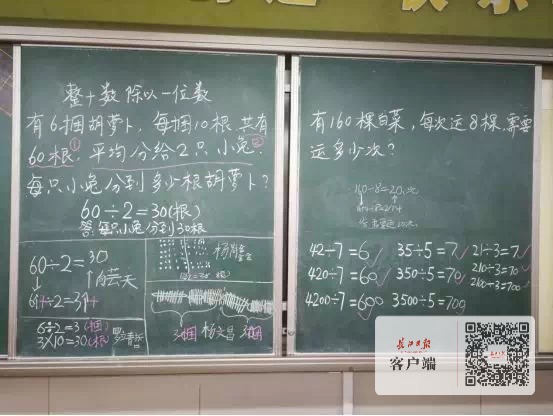 整十数除以一位数
有6捆胡萝卜,每捆10根,共有①
60根,平均分给2只小兔,②
每只小兔分到多少根胡萝卜?
60÷2=30(根)
答:每只小兔分到30根
60÷2=30
6个十÷2=3个十
6÷2=3(捆)
3×10=30(根)
3捆 杨文昌 3捆
有160棵白菜,每次运8棵,需要
运多少次?
160÷8=20(次)
42÷7=6 35÷5=7 21÷3=7
420÷7=60 350÷5=70 210÷3=70
4200÷7=600 3500÷5=700 2100÷3=700
长江日报
客户端